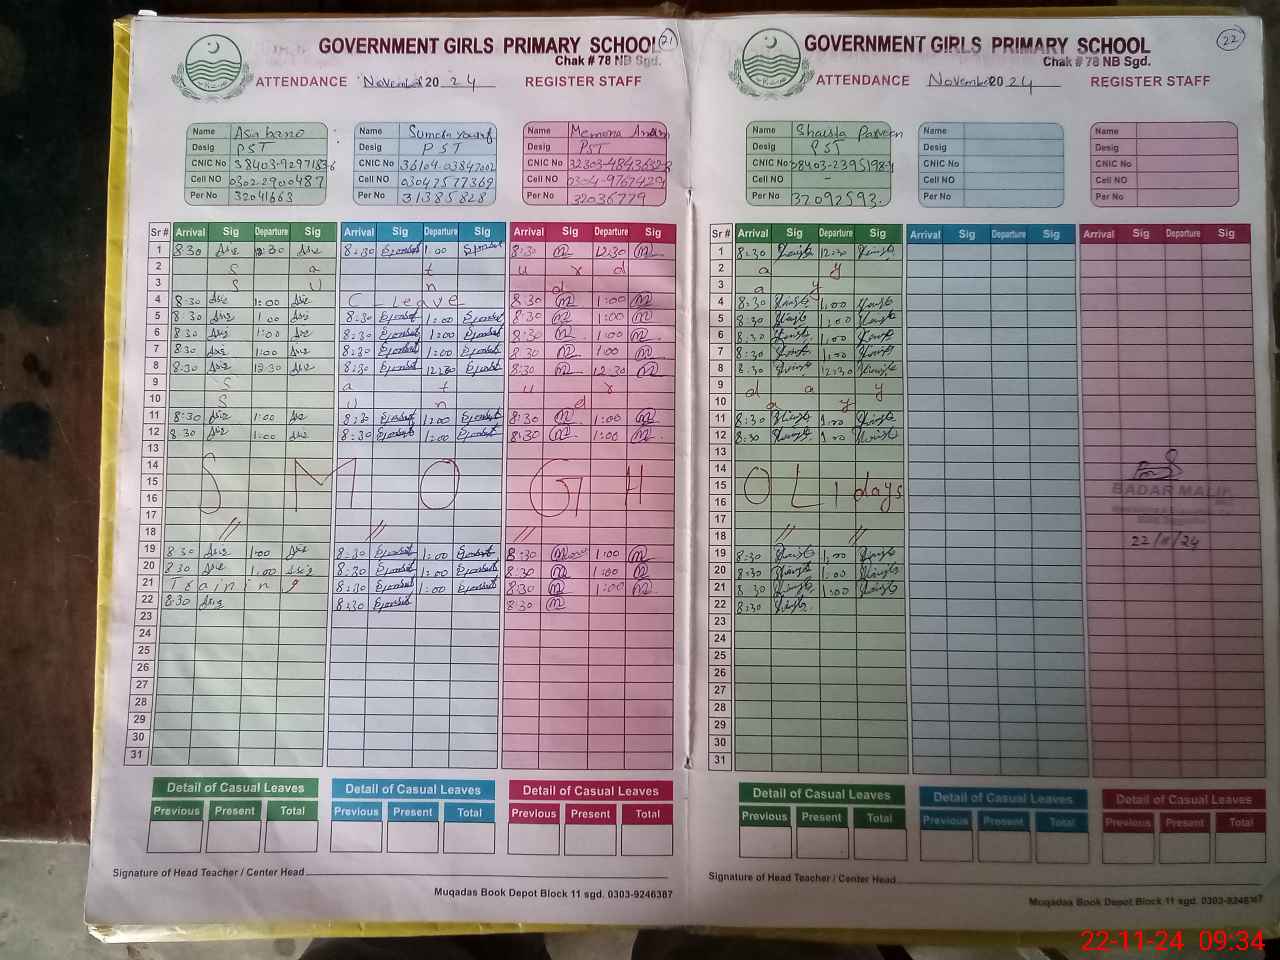 GOVERNMENT GIRLS PRIMARY SCHOOL 21
Chak # 78 NB Sgd.
ATTENDANCE November 2024 REGISTER STAFF
Name Asia bano
Desig PST
CNIC No
Cell NO 0302-2900487
Per No 32041663
Name Sumera yousaf
Desig PST
CNIC No
Cell NO 03047577369
Per No 31385828
Name Memona
Desig PST
CNIC No
Cell NO
Per No 32036779
Sr # Arrival Sig Departure Sig Arrival Sig Departure Sig Arrival Sig Departure Sig
1 8:30 12:30 8:30 1:00 8:30 12:30
2 S a t u r d
3 S u n d
4 8:30 1:00 C Leave 8:30 1:00
5 8:30 1:00 8:30 1:00 8:30 1:00
6 8:30 1:00 8:30 1:00 8:30 1:00
7 8:30 1:00 8:30 1:00 8:30 1:00
8 8:30 12:30 8:30 12:30 8:30 12:30
9 S a t u r
10 S u n d
11 8:30 1:00 8:30 1:00 8:30 1:00
12 8:30 1:00 8:30 1:00 8:30 1:00
13
14
15 S M O G H
16
17
18 // // //
19 8:30 1:00 8:30 1:00 8:30 1:00
20 8:30 1:00 8:30 1:00 8:30 1:00
21 Training 8:30 1:00 8:30 1:00
22 8:30 8:30 8:30
23
24
25
26
27
28
29
30
31
Detail of Casual Leaves Detail of Casual Leaves Detail of Casual Leaves
Previous Present Total Previous Present Total Previous Present Total
Signature of Head Teacher / Center Head
Muqadas Book Depot Block 11 sgd. 0303-9246387
GOVERNMENT GIRLS PRIMARY SCHOOL 22
Chak # 78 NB Sgd.
ATTENDANCE November 2024 REGISTER STAFF
Name Shaista Parveen
Desig PST
CNIC No
Cell NO -
Per No 32092593
Name
Desig
CNIC No
Cell NO
Per No
Name
Desig
CNIC No
Cell NO
Per No
Sr # Arrival Sig Departure Sig Arrival Sig Departure Sig Arrival Sig Departure Sig
1 8:30 12:30
2 a y
3 a y
4 8:30 1:00
5 8:30 1:00
6 8:30 1:00
7 8:30 1:00
8 8:30 12:30
9 d a y
10 a y
11 8:30 1:00
12 8:30 1:00
13
14
15 O L i days BADAR MALIK
16
17
18 // // 22/11/24
19 8:30 1:00
20 8:30 1:00
21 8:30 1:00
22 8:30
23
24
25
26
27
28
29
30
31
Detail of Casual Leaves Detail of Casual Leaves Detail of Casual Leaves
Previous Present Total Previous Present Total Previous Present Total
Signature of Head Teacher / Center Head
Muqadas Book Depot Block 11 sgd. 0303-9246387
22-11-24 09:34